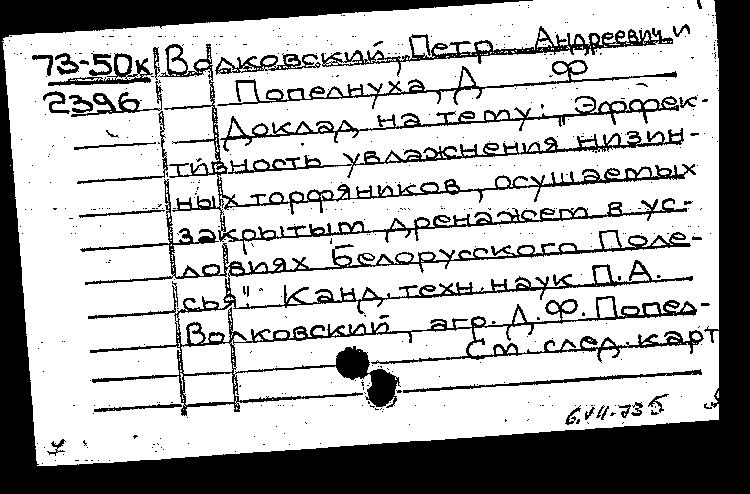 73-50к Волковский, Петр Андреевич и
2396 Попелнуха, Д Ф
Доклад на тему: „Эффек-
тивность увлажнения низин-
ных торфяников, осушаемых
закрытым дренажем в ус-
ловиях Белорусского Поле-
сья". Канд. техн. наук П.А.
Волковский, агр. Д.Ф. Попел-
См. след. карт
6.VII-73